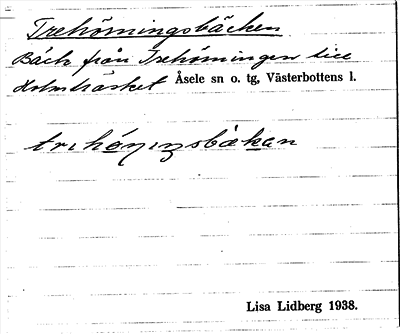 Trehörningsbäcken
Bäck från Trehörningen till
Holmträsket Åsele sn o. tg, Västerbottens l.
Lisa Lidberg 1938.